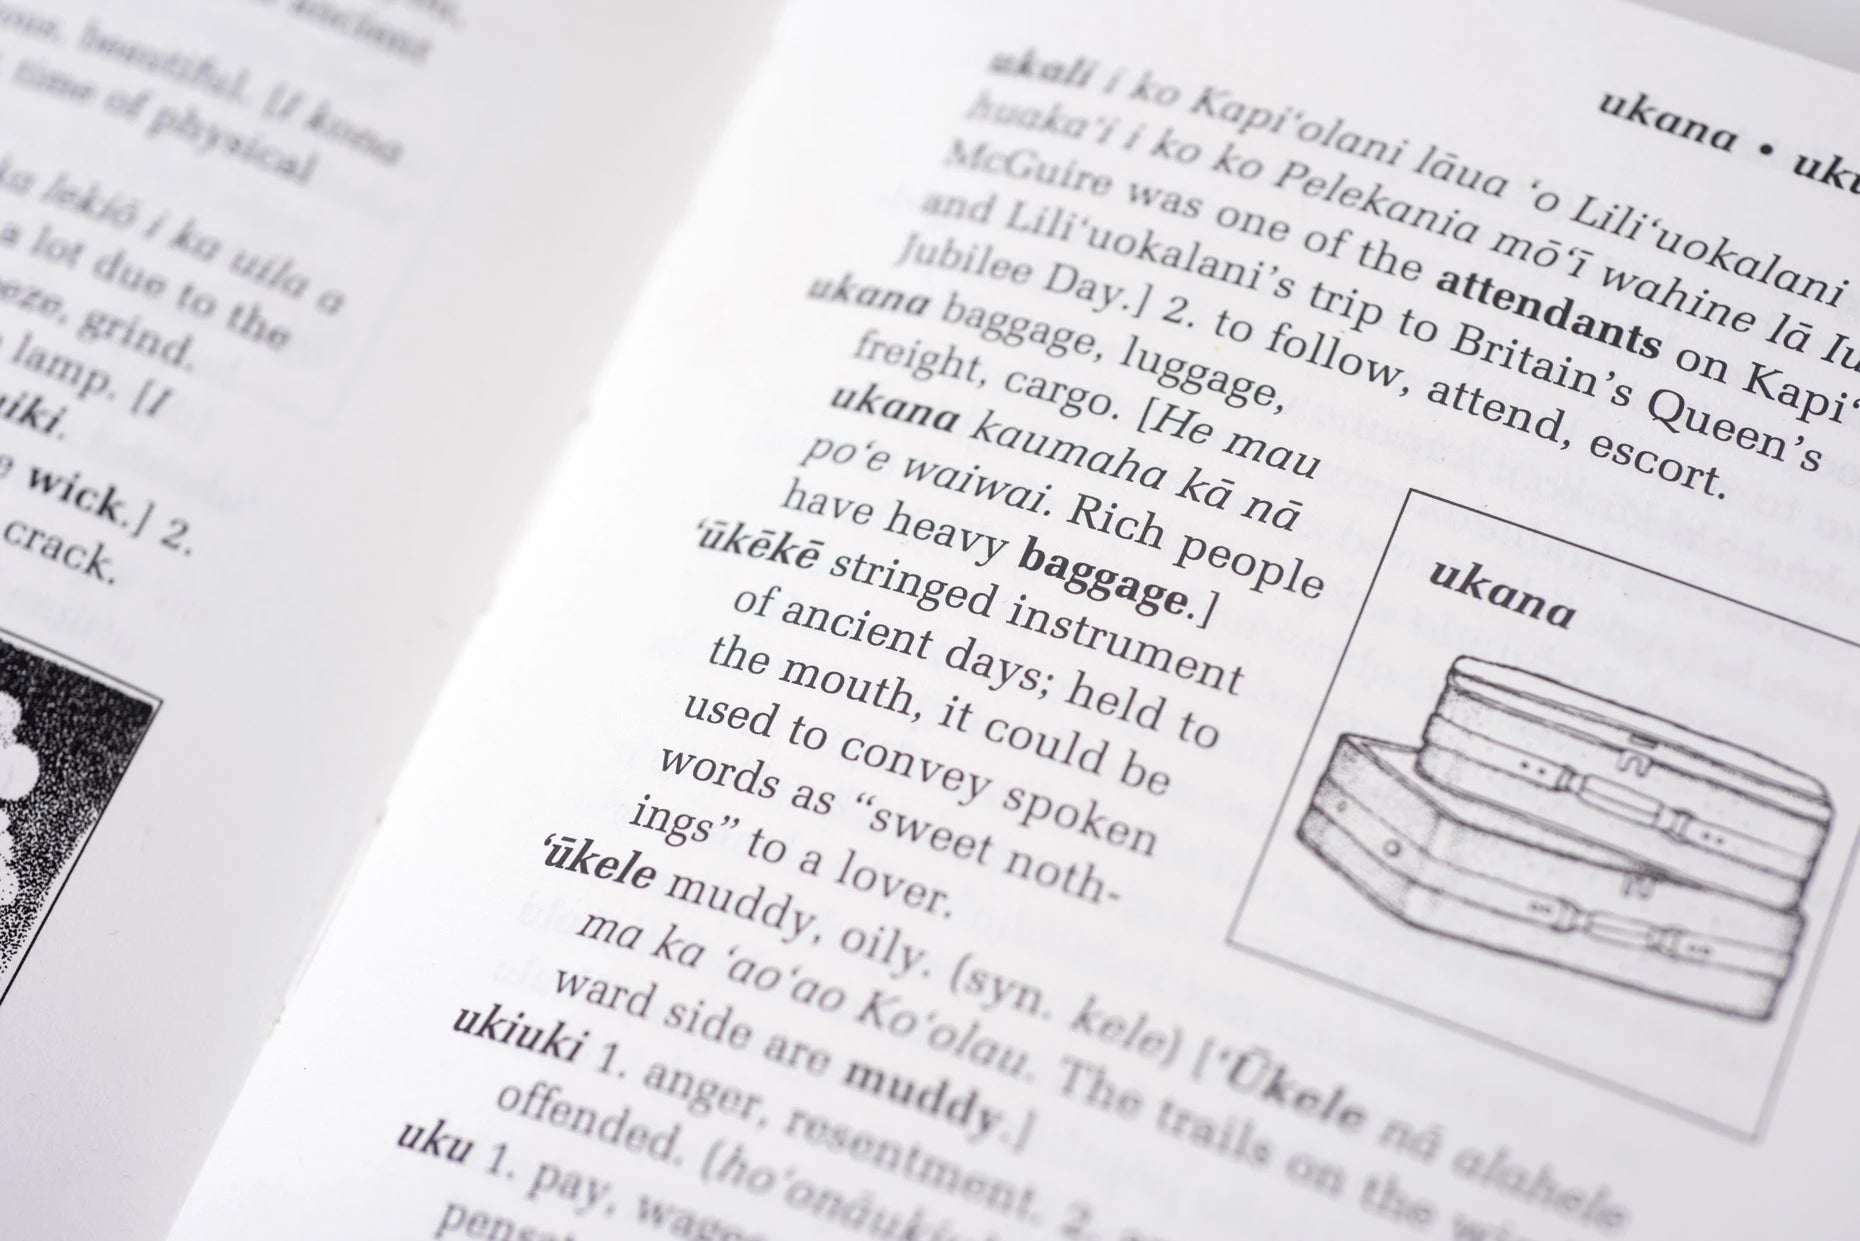 ancient
beautiful. [I kona
time of physical
lekiō i ka uila a
a lot due to the
grind.
lamp. [I
wick.] 2.
crack.
ukana •
ukali i ko Kapiʻolani lāua ʻo Liliʻuokalani
huakaʻi i ko ko Pelekania mōʻī wahine lā
McGuire was one of the attendants on Kapiʻ
and Liliʻuokalani’s trip to Britain’s Queen’s
Jubilee Day.] 2. to follow, attend, escort.
ukana baggage, luggage,
freight, cargo. [He mau
ukana kaumaha kā nā
poʻe waiwai. Rich people
have heavy baggage.]
ʻūkēkē stringed instrument
of ancient days; held to
the mouth, it could be
used to convey spoken
words as “sweet noth-
ings” to a lover.
ukana
ʻūkele muddy, oily. (syn. kele) [ʻŪkele nā alahele
ma ka ʻaoʻao Koʻolau. The trails on the
ward side are muddy.]
ukiuki 1. anger, resentment. 2.
offended.
uku 1. pay, wages